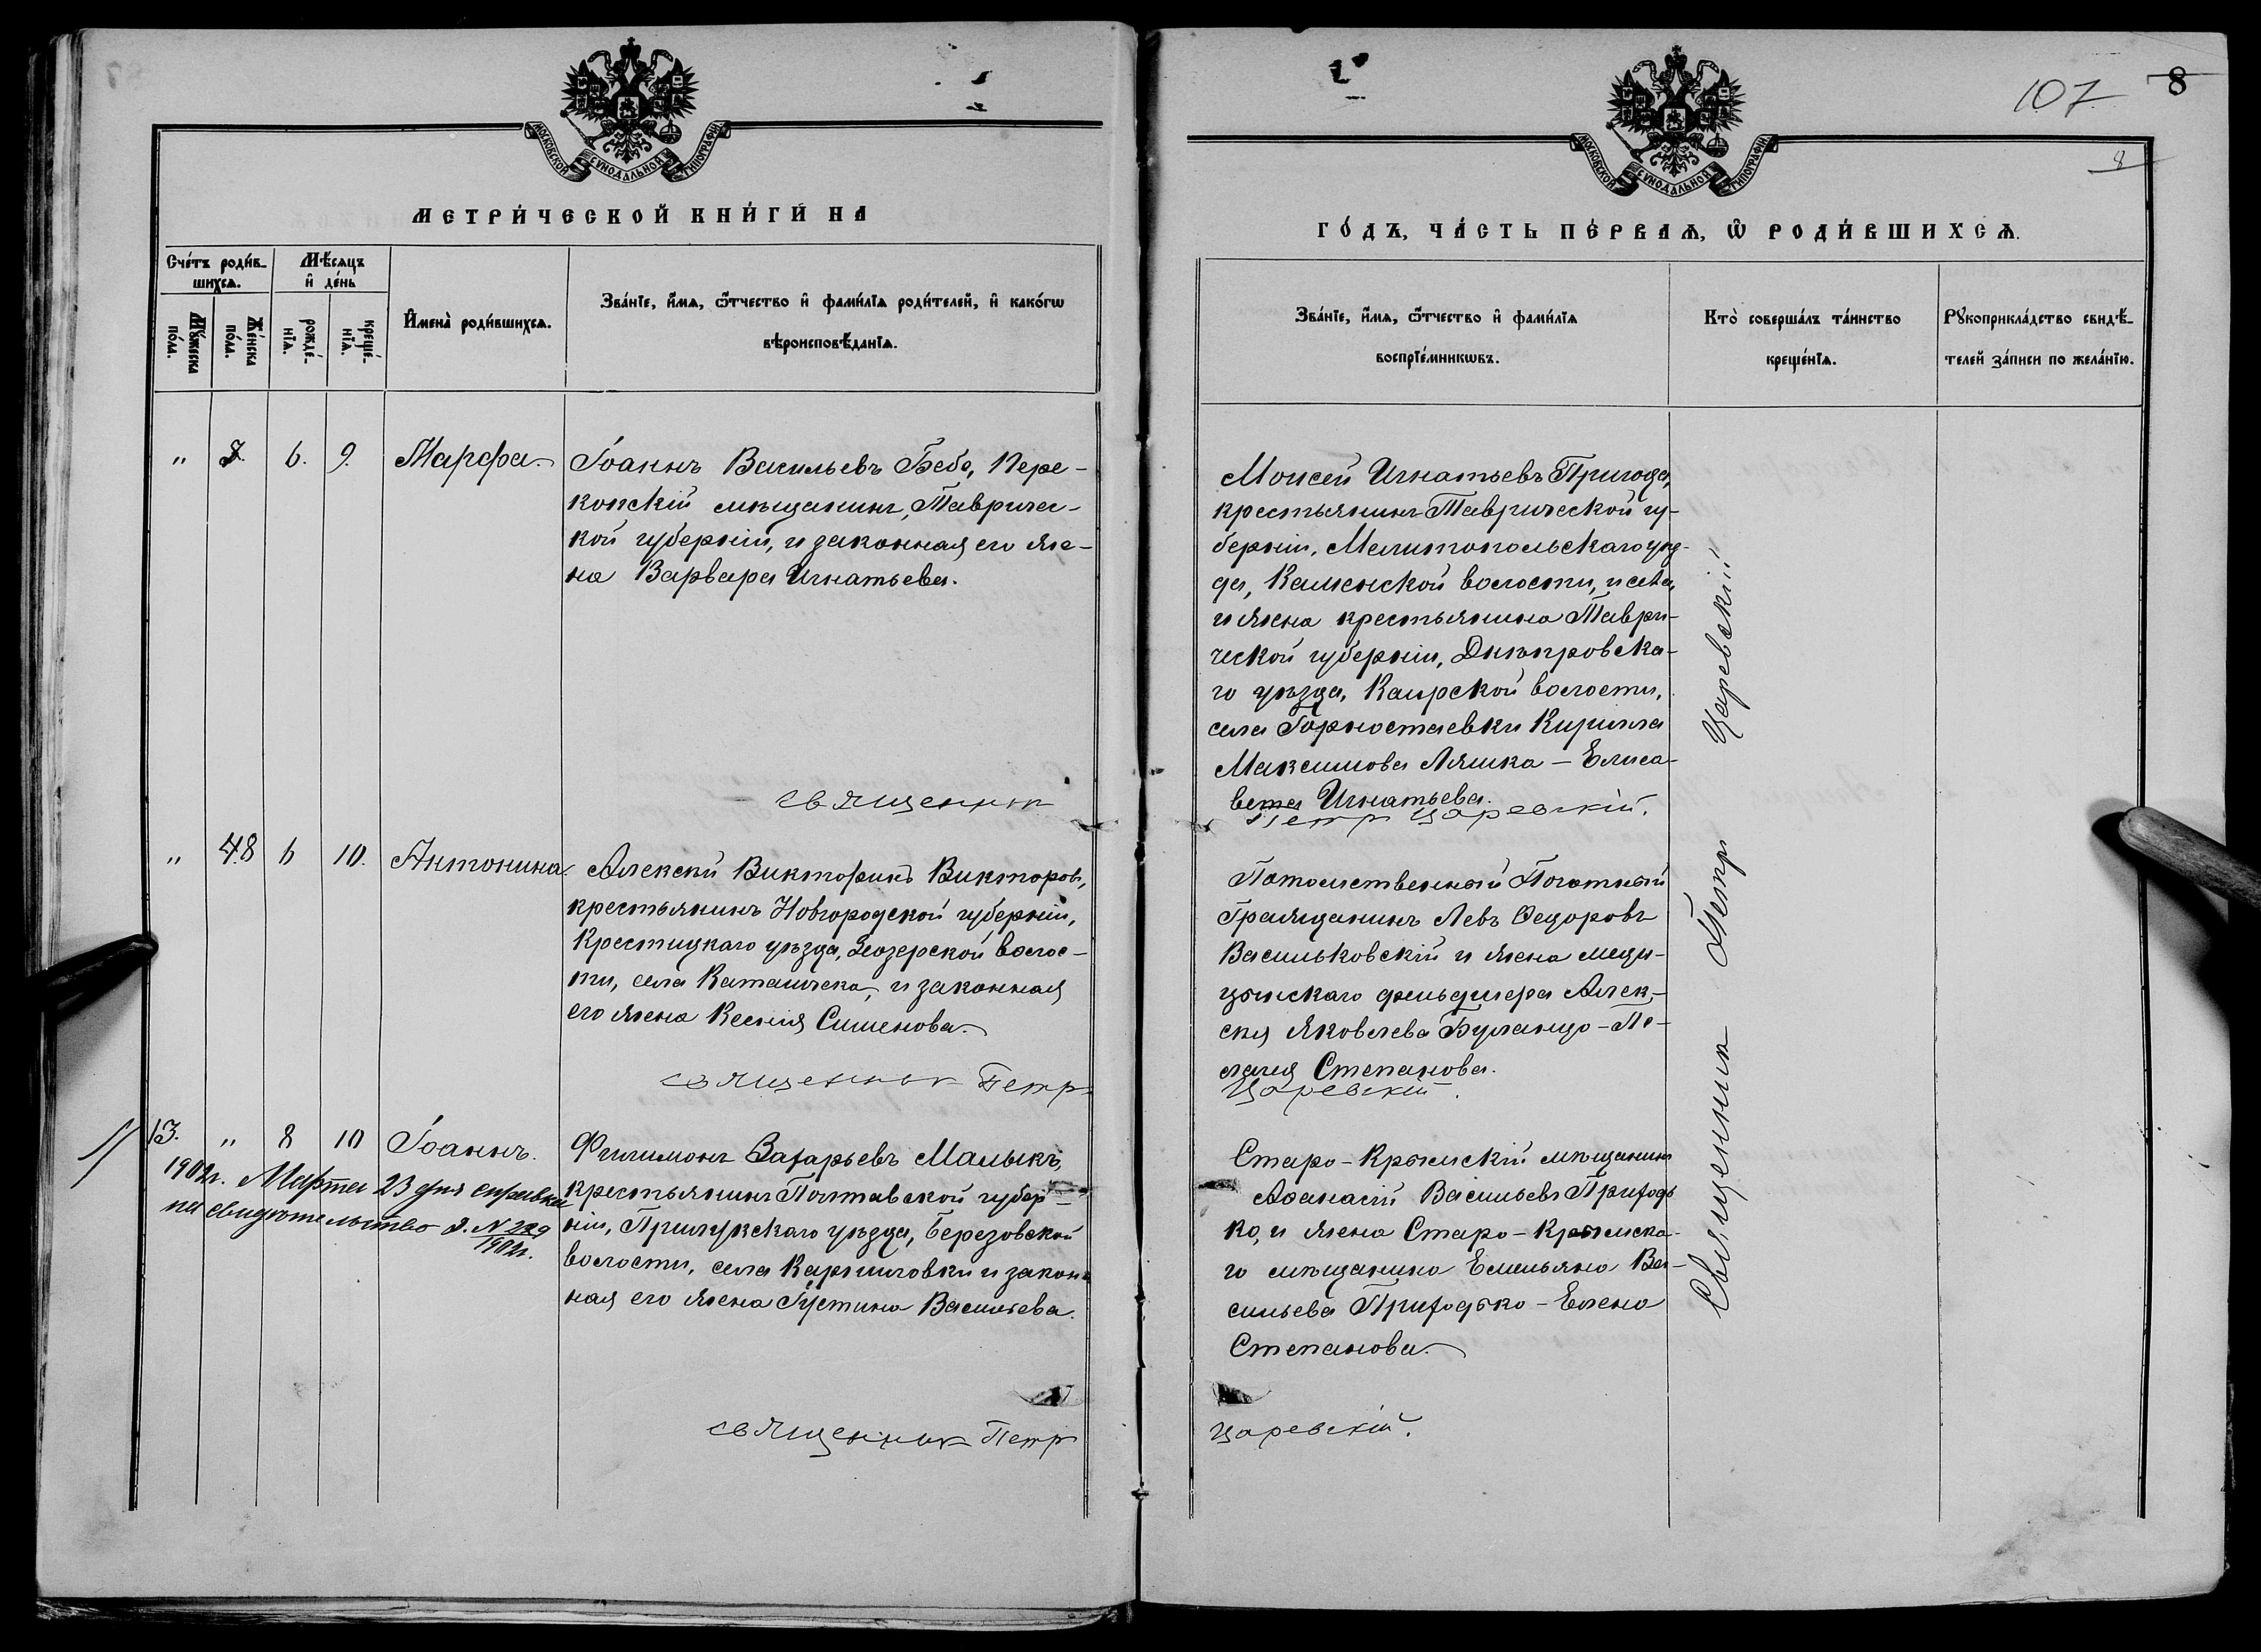 107 8
8
МОСКОВСКОЙ СѴНОДАЛЬНОЙ ТИПОГРАФІИ
МЕТРИ́ЧЕСКОЙ КНИ́ГИ НА
Сче́тъ роди́в-
шихсѧ.
Мѣ́сѧцъ
и҆ де́нь
Мꙋ́жеска
по́ла.
Же́нска
по́ла.
рожде́-
нїѧ.
креще́-
нїѧ.
И҆мена̀ роди́вшихсѧ.
Зва́нїе, и҆́мѧ, ѻ҆́тчество и҆ фами́лїѧ роди́телей, и҆ како́гѡ
вѣроисповѣ́данїѧ.
" 7. 6. 9. Марфа.
Іоаннъ Васильевъ Бебо, Пере-
копскій мѣщанинъ, Тавричес-
кой губерніи, и законная его же-
на Варвара Игнатьева.
Священник
" 8 6 10. Антонина.
Алексѣй Викторинъ Викторовъ,
крестьянинъ Новгородской губерніи,
Крестецкаго уѣзда, Заозерской волос-
ти, села и законная
его жена Ксенія Сименова.
Священник Петр
13. " 8 10 Іоаннъ.
Филимонъ Захарьевъ Малыкъ,
крестьянинъ Полтавской губер-
ніи, Прилукскаго уѣзда, Березовской
волости, села Карпиловки и закон-
ная его жена Іустина Васильева.
1902г. Марта 23 дня справка
на свидѣтельство з. N 229
1902г.
Священник Петр
МОСКОВСКОЙ СѴНОДАЛЬНОЙ ТИПОГРАФІИ
ГО́ДЪ, ЧА́СТЬ ПЕ́РВАѦ, Ѡ҆ РОДИ́ВШИХСѦ.
Зва́нїе, и҆́мѧ, ѻ҆́тчество и҆ фами́лїѧ
воспрїе́мникѡвъ.
Кто̀ соверша́лъ та́инство
креще́нїѧ.
Рꙋкоприкла́дство свидѣ́-
телей за́писи по жела́нїю.
Моисей Игнатьевъ Пригода,
крестьянинъ Таврической гу-
берніи, Мелитопольскаго уѣз-
да, Каменской волости, и села,
и жена крестьянина Таври-
ческой губерніи, Днѣпровска-
го уѣзда, Каирской волости,
села Горностаевки Кирилла
Максимова Ляшка - Елиса-
вета Игнатьева.
Петр Царевскій.
Потомственный Почотный
Гражданинъ Левъ Ѳедоровъ
Васильковскій и жена меди-
цынскаго фельдшера Алек-
сѣя Яковлева Буланцо - Пе-
лагія Степанова.
Царевскій.
Старо-Крымскій мѣщанинъ
Аѳанасій Васильевъ Приходь
ко, и жена Старо-Крымска-
го мѣщанина Емельяна Ва-
сильева Приходько - Елена
Степанова.
Царевскій.
Священник Петр Царевскій